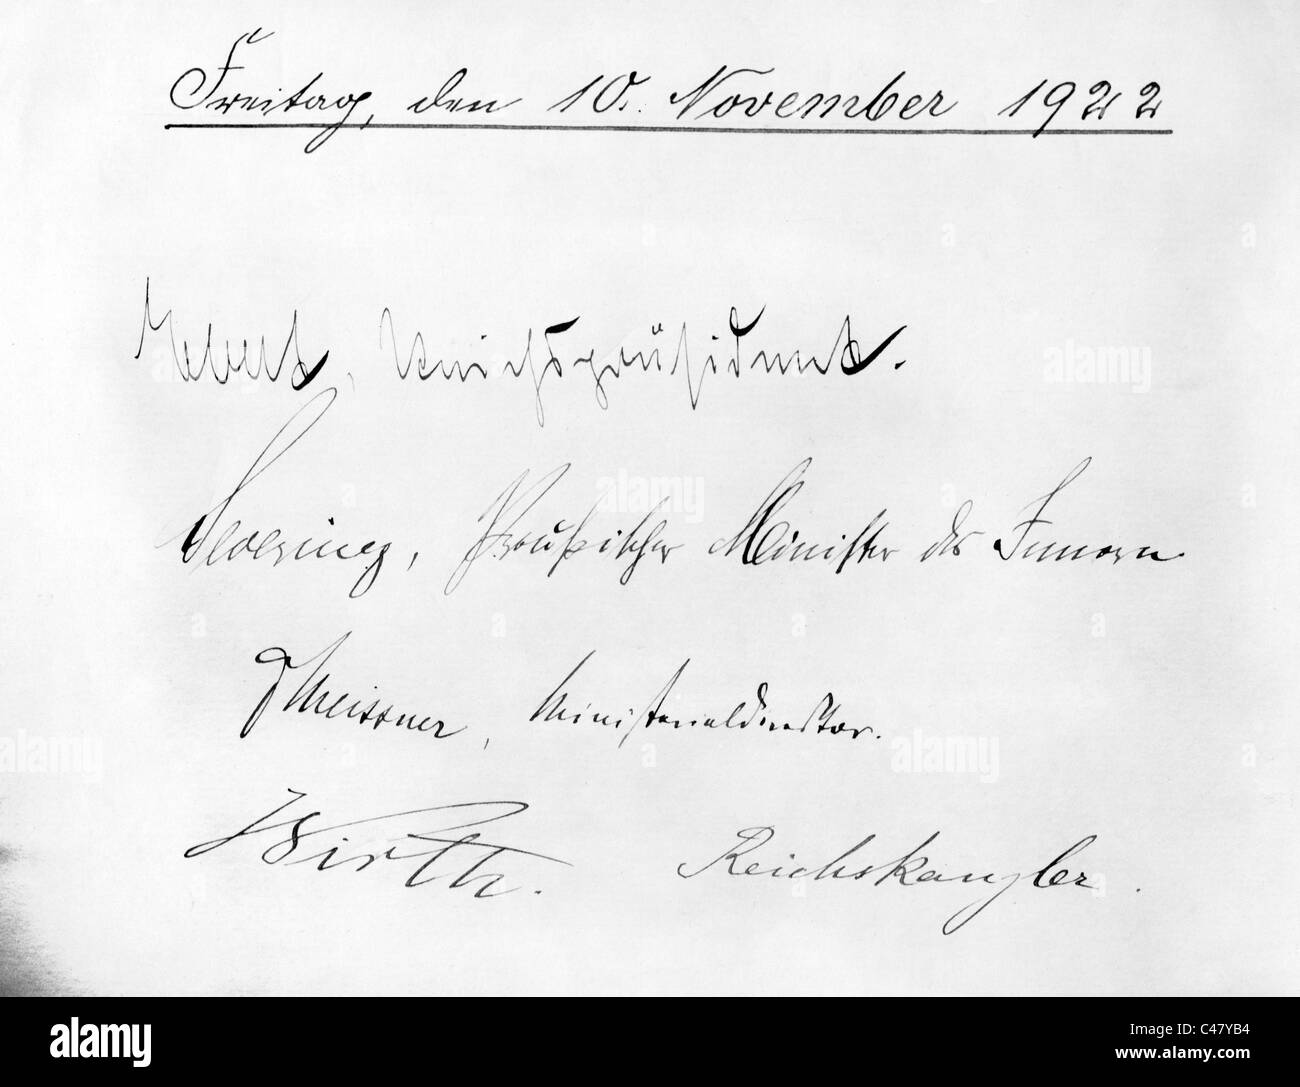 Freitag, den 10. November 1922
Ebert, Reichspräsident.
Severing, Preußischer Minister des Innern
Meissner, Ministerialdirektor.
Wirth. Reichskanzler.
alamy
Image ID: C47YB4
www.alamy.com